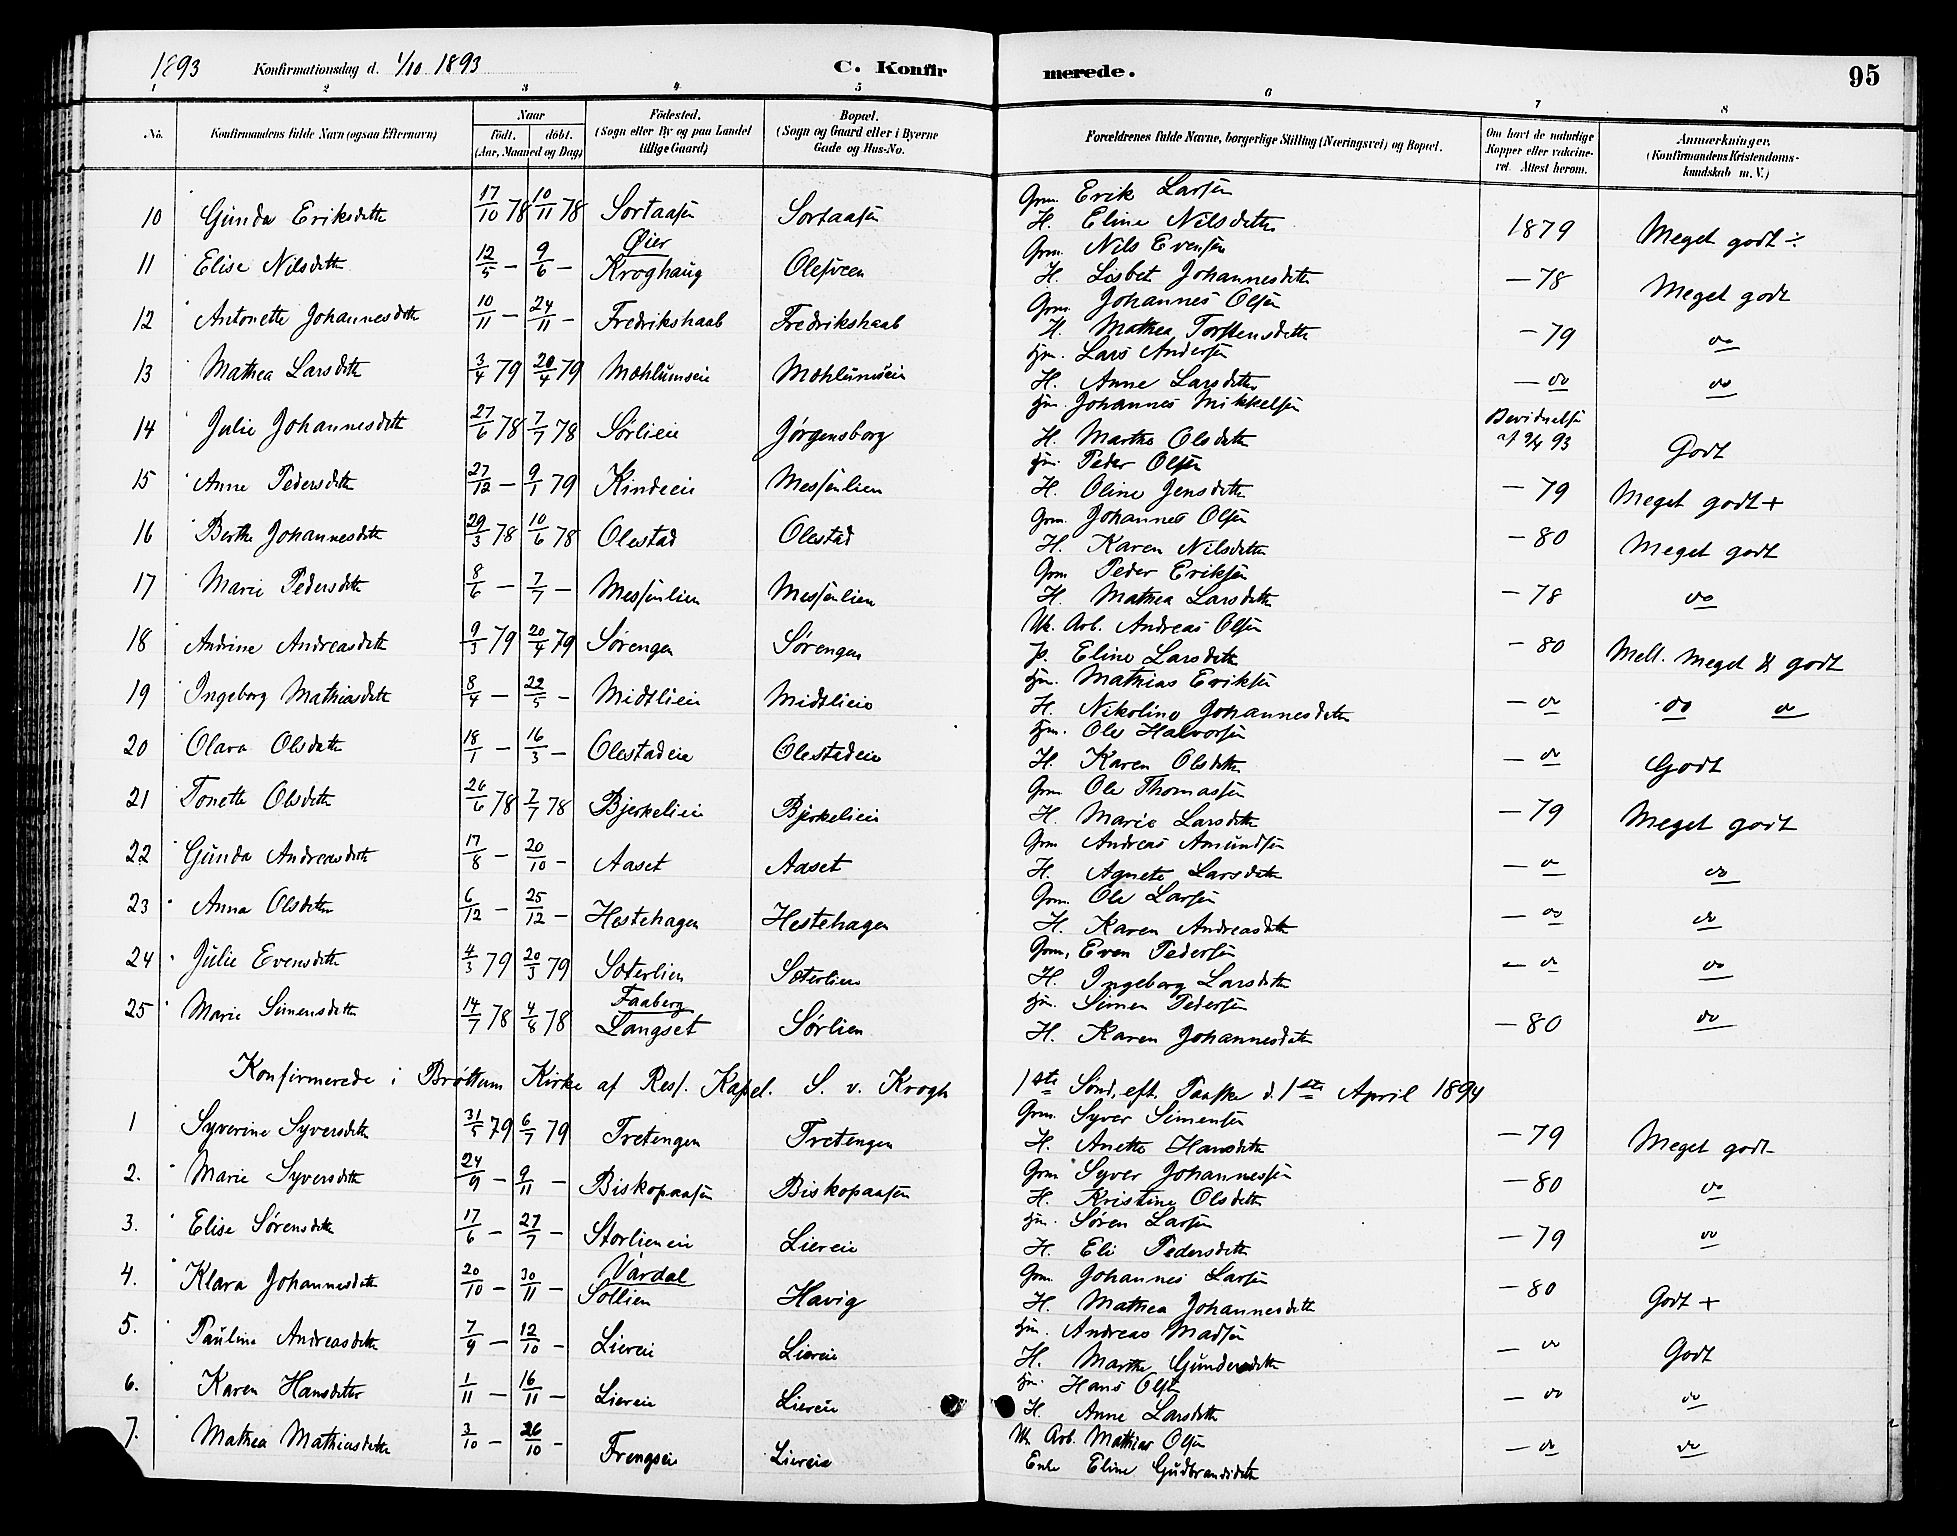 1893 Konfirmationsdag d. 1/10 1893 C. Konfirmerede. 95
1 2 3 4 5 6 7 8
No. Konfirmandens fulde Navn (ogsaa Efternavn) Naar födt. döbt. (Aar, Maaned og Dag) Födested. (Sogn eller By og paa Landet tillige Gaard) Bopæl. (Sogn og Gaard eller i Byerne Gade og Hus-No. Forældrenes fulde Navne, borgerlige Stilling (Næringsvei) og Bopæl. Om havt de naturlige Kopper eller vakcineret. Attest herom. Anmærkninger. (Konfirmandens Kristendomskundskab m. V.)
10 Gunda Eriksdatter 17/10 78 10/11 78 Sortaasen Sortaasen Grm. Erik Larsen
H. Eline Nilsdatter 1879 Meget godt ÷
11 Elise Nilsdatter 12/5 — 9/6 — Øier Kroghaug Olesveen Grm. Nils Evensen
H. Lisbet Johannesdatter — 78 Meget godt
12 Antonette Johannesdatter 10/11 — 24/11 — Fredrikshaab Fredrikshaab Grm. Johannes Olsen
H. Mathea Torstensdatter — 79 do
13 Mathea Larsdatter 3/4 79 20/4 79 Mæhlumseie Mæhlumseie Hjm. Lars Andersen
H. Anne Larsdatter — do do
14 Julie Johannesdatter 27/6 78 7/7 78 Sørlieie Jørgensborg Hjm. Johannes Mikkelsen
H. Marthe Olsdatter Bevidnelse af 93 Godt
15 Anne Pedersdatter 27/12 — 9/1 79 Kindeeie Messenlien Hjm. Peder Olsen
H. Oline Jensdatter — 79 Meget godt +
16 Berthe Johannesdatter 29/3 78 10/6 78 Olestad Olestad Grm. Johannes Olsen
H. Karen Nilsdatter — 80 Meget godt
17 Marie Pedersdatter 8/6 — 7/7 — Messenlien Messenlien Grm Peder Eriksen
H. Mathea Larsdatter — 78 do
18 Andrine Andreasdatter 9/3 79 20/4 79 Sørengen Sørengen Uk. Arb. Andreas Olsen
P. Eline Larsdatter — 80 Mell. Meget & godt
19 Ingeborg Mathiasdatter 8/4 — 22/5 — Midtlieie Midtlieie Hjm. Mathias Eriksen
H. Nikoline Johannesdatter — do do do
20 Olava Olsdatter 18/1 — 16/3 — Olestadeie Olestadeie Hjm. Ole Halvorsen
H. Karen Olsdatter — do Godt
21 Tonette Olsdatter 26/6 78 7/7 78 Bjerkelieie Bjerkelieie Grm. Ole Thomassen
H. Marie Larsdatter — 79 Meget godt
22 Gunda Andreasdatter 17/8 — 20/10 — Aaset Aaset Grm Andreas Amundsen
H. Agnete Larsdatter — do do
23 Anna Olsdatter 6/12 — 25/12 — Hestehagen Hestehagen Grm. Ole Larsen
H. Karen Andreasdatter — do do
24 Julie Evensdatter 4/3 79 20/3 79 Sæterlien Sæterlien Grm. Even Pedersen
H. Ingeborg Larsdatter — do do
25 Marie Simensdatter 14/7 78 4/8 78 Faaberg Langset Sørlien Hjm. Simen Pedersen
H. Karen Johannesdatter — 80 do
Konfirmerede i Brøttum Kirke af Res. Kapel. S. v. Krogh 1ste Sønd. eft. Paaske d. 1ste April 1894
1 Syverine Syversdatter 31/5 79 6/7 79 Tretengen Tretengen Grm. Syver Simensen
H. Anette Hansdatter — 79 Meget godt
2. Marie Syversdatter 24/9 — 9/11 — Biskopaasen Biskopaasen Grm Syver Johannessen
H. Kristine Olsdatter — 80 do
3. Elise Sørensdatter 17/6 — 27/7 — Storlieneie Liereie Hjm. Søren Larsen
H. Eli Pedersdatter — 79 do
4. Klara Johannesdatter 20/10 — 30/11 — Vardal Sollien Havig Grm. Johannes Larsen
H. Mathea Johannesdatter — 80 Godt +
5. Pauline Andreasdatter 7/9 — 12/10 — Liereie Liereie Hjm. Andreas Madsen
H. Marthe Gundersdatter — do Godt
6. Karen Hansdatter 1/11 — 16/11 — Liereie Liereie Hjm. Hans Olsen
H. Anne Larsdatter — do do
7. Mathea Mathiasdatter 3/10 — 26/10 — Frengseie Liereie Uk Arb. Mathias Olsen
Enke Eline Gudbrandsdatter — do do